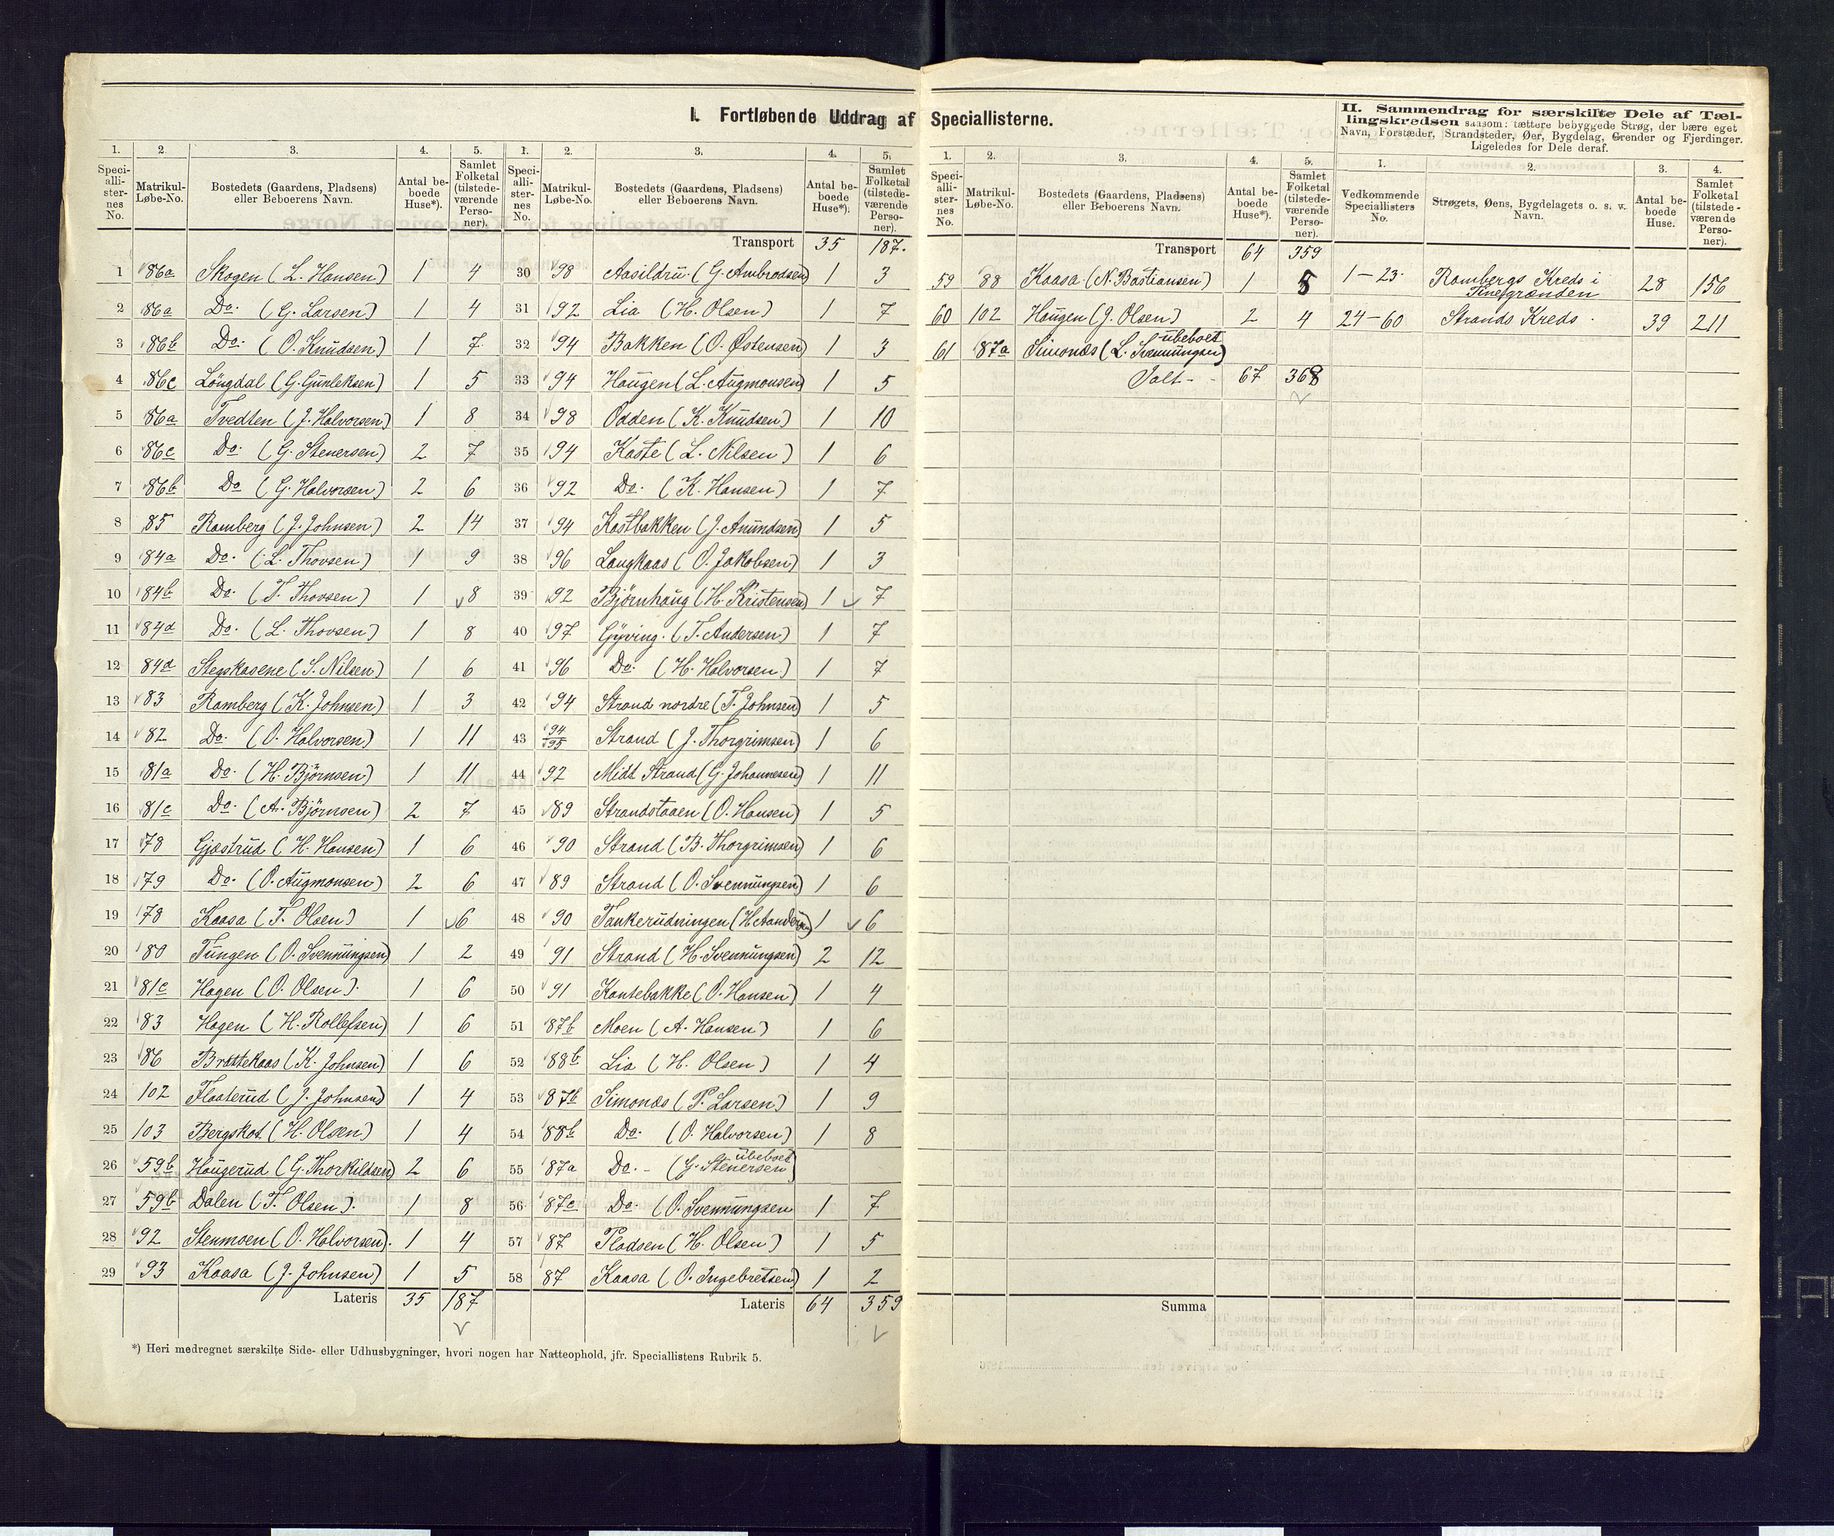 I. Fortløbende Uddrag af Speciallisterne.
1. 2. 3. 4. 5.
Speciallisternes No. Matrikul-Løbe-No. Bostedets (Gaardens, Pladsens) eller Beboerens Navn. Antal beboede Huse*). Samlet Folketal (tilstedeværende Personer).
1 86a Skogen (L. Hansen) 1 4
2 86a Do. (G. Larsen) 1 4
3 86b Do. (O. Knudsen) 1 7
4 86c Löugdal (G. Gunleksen) 1 5
5 86a Tvedten (J. Halvorsen) 1 8
6 86c Do. (G. Stenersen) 2 7
7 86b Do (G. Halvorsen) 2 6
8 85 Ramberg (J. Johnsen) 2 14
9 84a Do. (L. Thovsen) 1 9
10 84b Do. (T. Thovsen) 1 8
11 84d Do. (L. Thovsen) 1 8
12 84d Stegskasene (S. Nilsen) 1 6
13 83 Ramberg (K. Johnsen) 1 3
14 82 Do. (O. Halvorsen) 1 11
15 81a Do. (H. Björnsen) 1 11
16 81c Do. (A. Björnsen) 2 7
17 78 Gjæstrud (H. Hansen) 1 6
18 79 Do. (O. Augmonsen) 2 6
19 78 Kaasa (T. Olsen) 1 6
20 80 Tungen (O. Svennungsen) 1 2
21 81c Hagen (O. Olsen). 1 6
22 83 Hagen (H. Rollefsen) 1 6
23 86 Brattekaas (K. Johnsen) 1 6
24 102 Flaaterud (J. Johnsen) 1 4
25 103 Bergskot. (H. Olsen) 1 4
26 59b Haugerud (G. Thorkildsen) 2 6
27 59b Dalen (T. Olsen). 1 8
28 92 Stenmoen (O. Halvorsen). 1 4
29 93 Kaasa (J. Johnsen) 1 5
Lateris 35 187
*) Heri medregnet særskilte Side- eller Udhusbygninger, hvori nogen har Natteophold, jfr. Speciallistens Rubrik 5.
1. 2. 3. 4. 5.
Speciallisternes No. Matrikul-Løbe-No. Bostedets (Gaardens, Pladsens) eller Beboerens Navn. Antal beboede Huse*). Samlet Folketal (tilstedeværende Personer).
Transport 35 187.
30 98 Aasildru (G. Ambrodsen) 1 3
31 92 Lia (H. Olsen) 1 7
32 94 Bakken (O. Østensen) 1 3
33 94 Haugen (L. Augmonsen) 1 5
34 98 Odden (K. Knudsen) 1 10
35 94 Kaste (L. Nilsen) 1 6
36 92 Do. (K. Hansen) 1 7
37 94 Kastbakken (J. Anundsen) 1 5
38 96 Langkaas (O. Jakobsen) 1 3
39 92 Bjørnhaug (H. Kristensen) 1 7
40 97 Gyving. (T. Andersen) 1 7
41 96 Do. (H. Halvorsen) 1 7
42 94 Strand nordre (T. Johnsen) 1 5
43 94/95 Strand (J. Thorgrimsen) 1 6
44 92 Midt Strand (G. Johannesen) 1 11
45 89 Strandstaaen (O. Hansen) 1 5
46 90 Strand (B. Thorgrimsen) 1 6
47 89 Strand (O. Svennungsen) 1 6
48 90 Tankerudningen 1 6
49 91 Strand (H. Svennungsen) 2 12
50 91 Kantebakke (O. Hansen) 1 4
51 87b Moen (A. Hansen) 1 6
52 88b Lia (H. Olsen) 1 4
53 87b Simonæs (P. Larsen) 1 9
54 88b Do. (O. Halvorsen) 1 8
55 87a Do. - (G. Stenersen) ubeboet
56 87c Do. (O. Svennungsen 1 7
57 87 Pladsen (H. Olsen) 1 5
58 87 Kaasa (O. Ingebretsen) 1 2
Lateris 64 359
1. 2. 3. 4. 5.
Speciallisternes No. Matrikul-Løbe-No. Bostedets (Gaardens, Pladsens) eller Beboerens Navn. Antal beboede Huse*). Samlet Folketal (tilstedeværende Personer).
Transport 64 359
59 88 Kaasa (N. Bastiansen) 1 5
60 102 Haugen (J. Olsen) 2 4
61 87a Simonæs (L. Svennungsen) ubeboet
Ialt - - 67 368
Summa
II. Sammendrag for særskilte Dele af Tællingskredsen saasom: tættere bebyggede Strøg, der bære eget Navn, Forstæder, Strandsteder, Øer, Bygdelag, Grender og Fjerdinger. Ligeledes for Dele deraf.
1. 2. 3. 4.
Vedkommende Speciallisters No. Strøgets, Øens, Bygdelagets o. s. v. Navn. Antal beboede Huse. Samlet Folketal (tilstedeværende Personer).
1 - 23. Rambergs Kreds i Tinesgrænden 28 156
24 - 60 Strands Kreds. 39 211